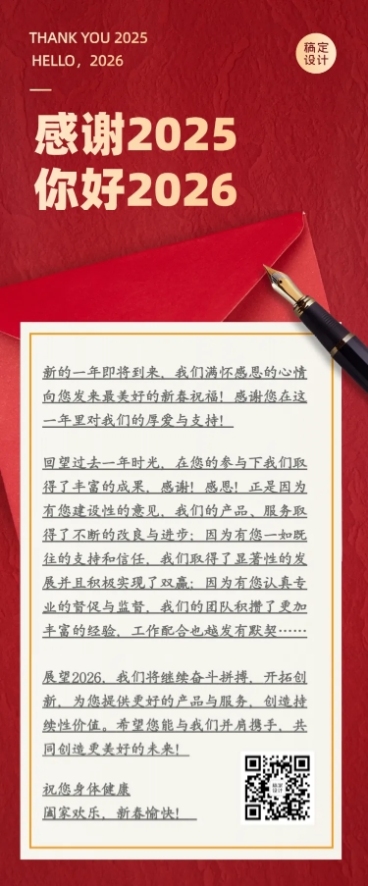 THANK YOU 2025
HELLO，2026
稿定
设计
感谢2025
你好2026
新的一年即将到来，我们满怀感恩的心情
向您发来最美好的新春祝福！感谢您在这
一年里对我们的厚爱与支持！
回望过去一年时光，在您的参与下我们取
得了丰富的成果，感谢！感恩！正是因为
有您建设性的意见，我们的产品、服务取
得了不断的改良与进步；因为有您一如既
往的支持和信任，我们取得了显著性的发
展并且积极实现了双赢；因为有您认真专
业的督促与监督，我们的团队积攒了更加
丰富的经验，工作配合也越发有默契……
展望2026，我们将继续奋斗拼搏，开拓创
新，为您提供更好的产品与服务，创造持
续性价值。希望您能与我们并肩携手，共
同创造更美好的未来！
祝您身体健康
阖家欢乐，新春愉快！